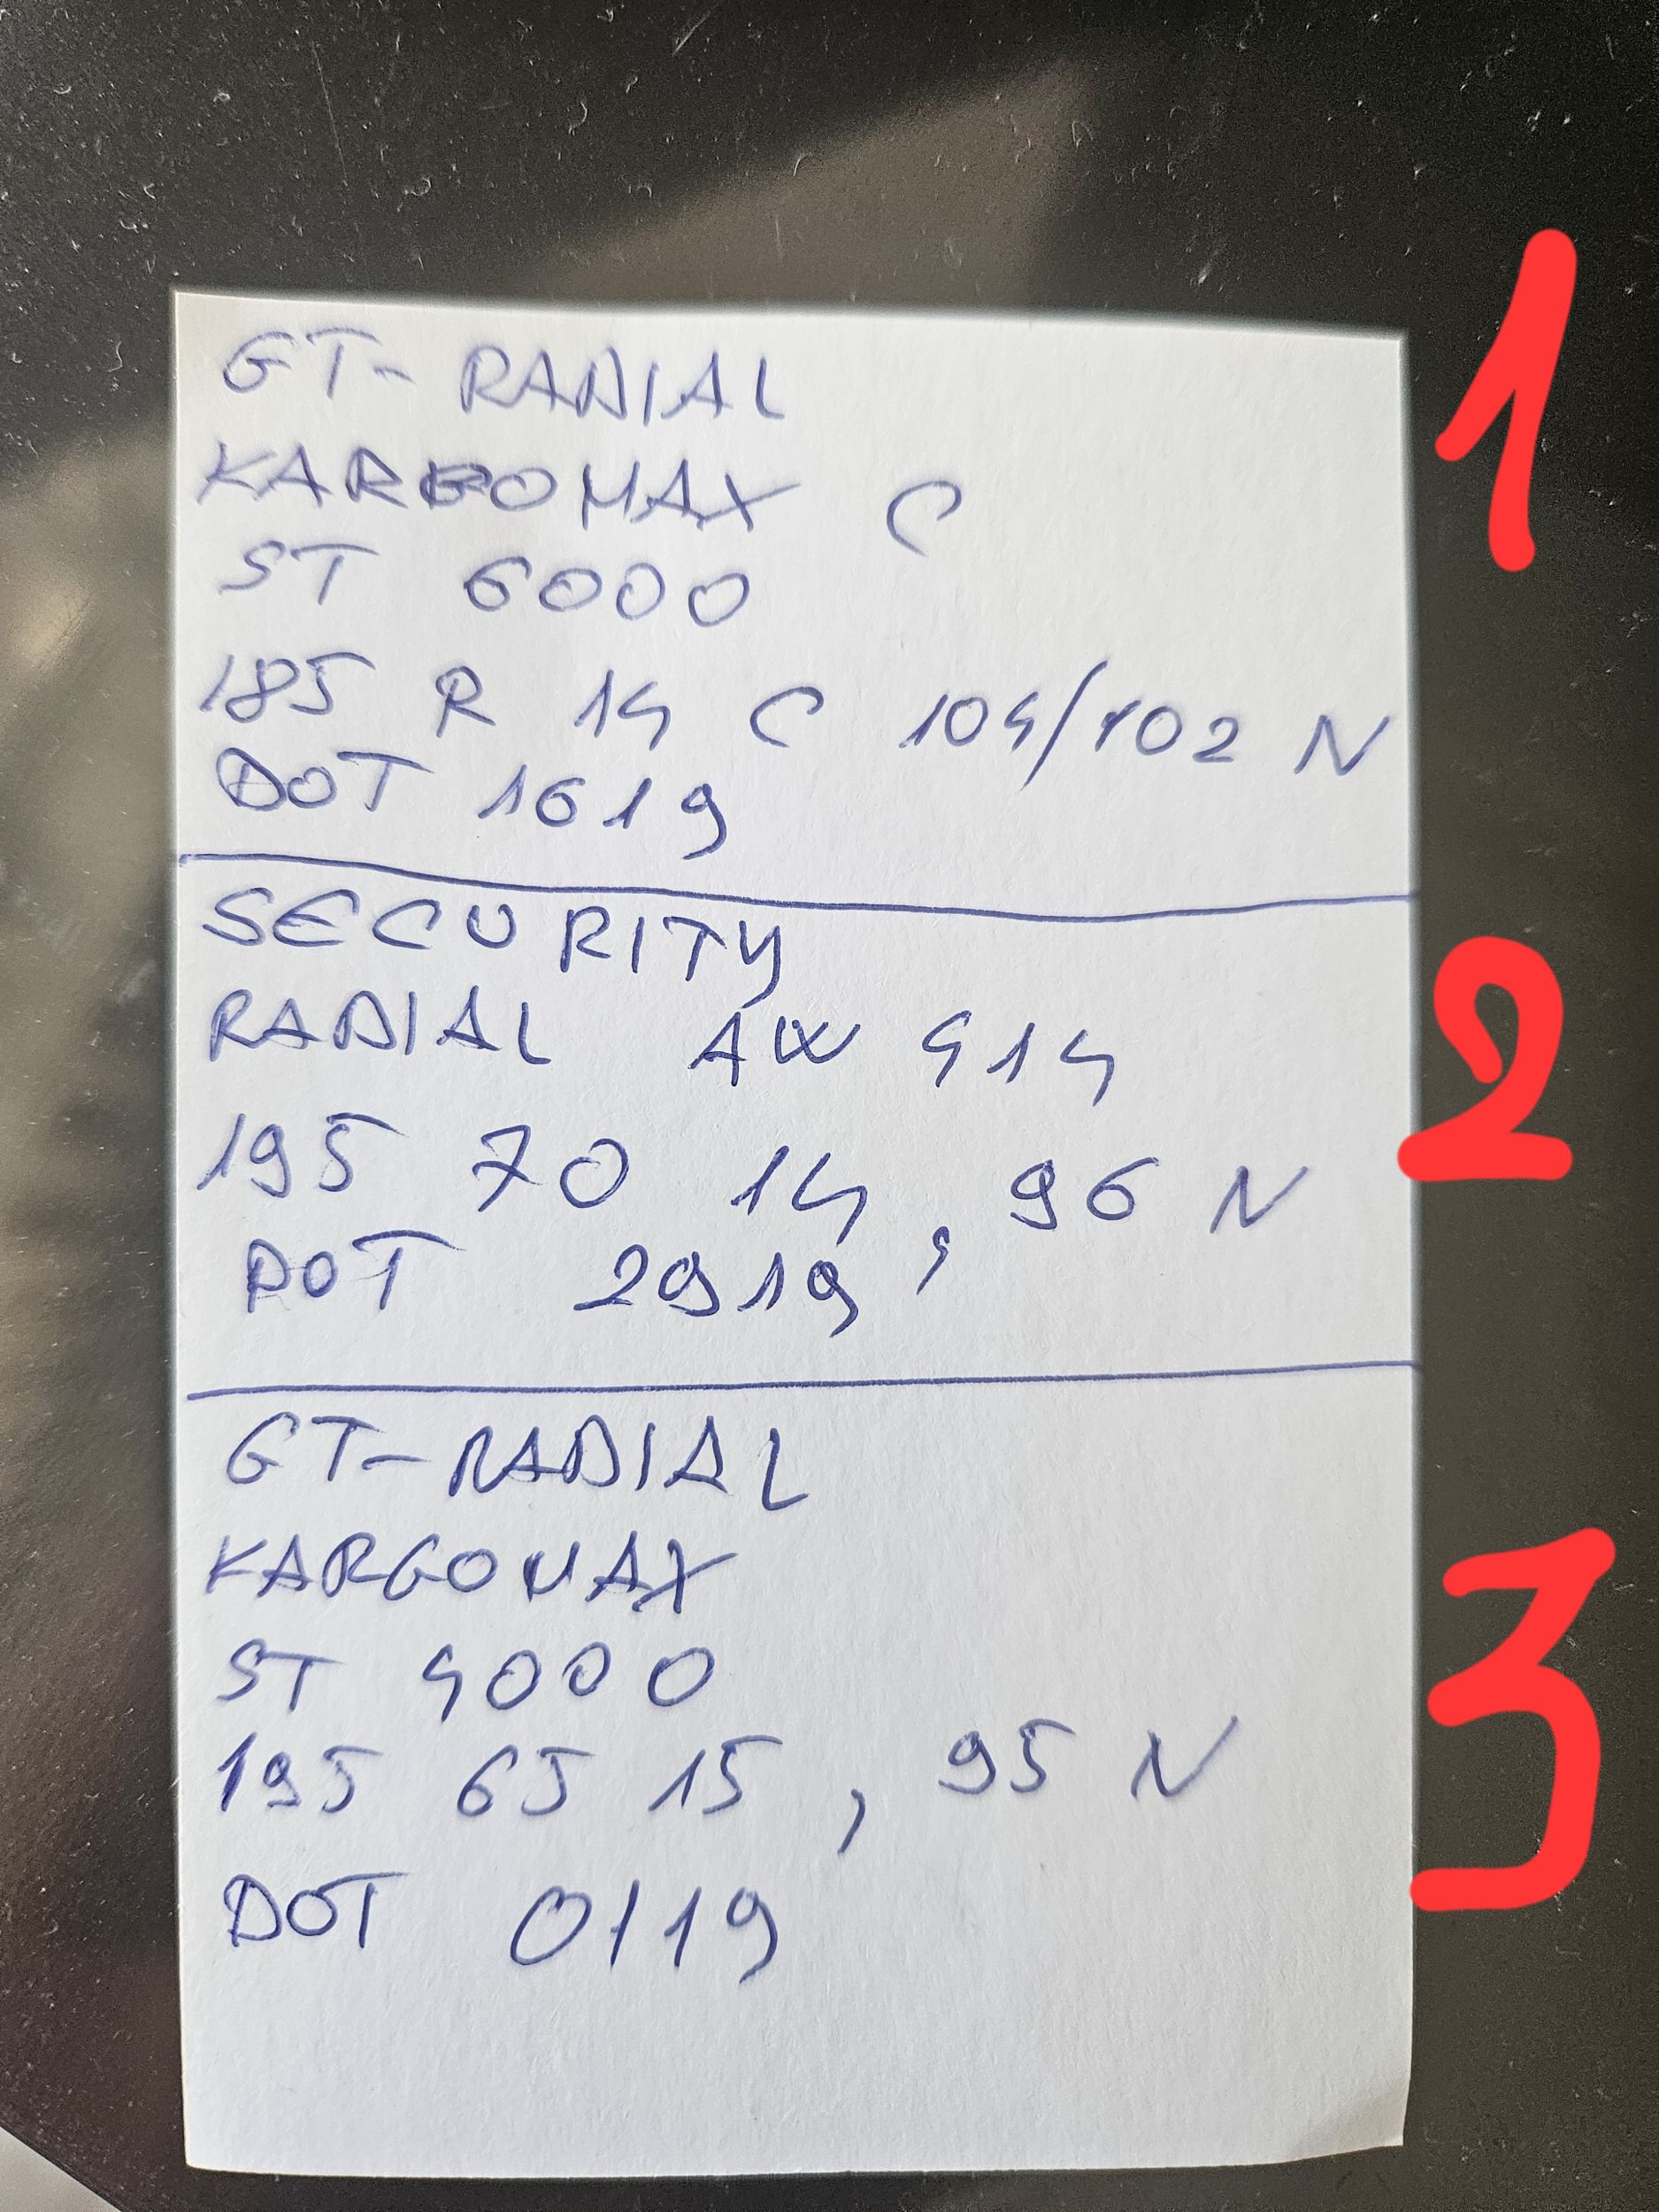 GT-RADIAL
KARGOMAX C
ST 6000
185 R 14 C 104/102 N
DOT 1619
1
SECURITY
RADIAL AW 414
195 70 14, 96 N
DOT 2919,
2
GT-RADIAL
KARGOMAX
ST 4000
195 65 15, 95 N
DOT 0119
3